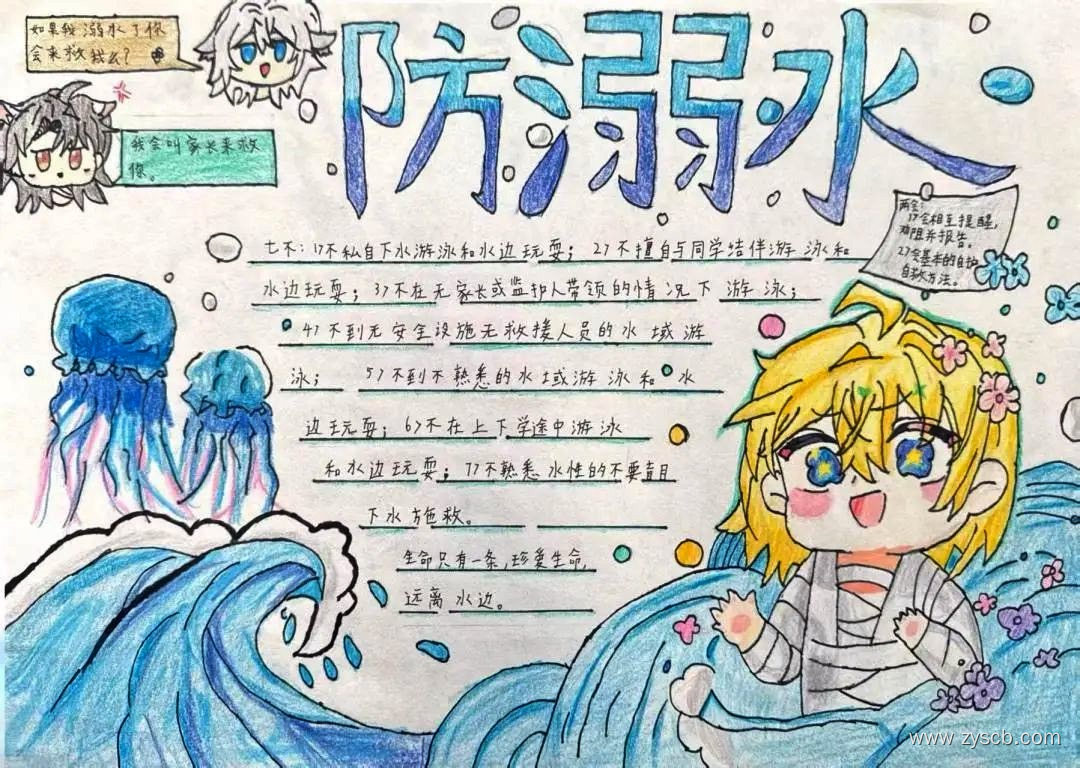 如果我溺水了你
会来救我么？
我会叫家长来救
你。
防溺水
两会：
1>会相互提醒，
劝阻并报告。
2>会基本的自护
自救方法。
七不：1>不私自下水游泳和水边玩耍；2>不擅自与同学结伴游泳和
水边玩耍；3>不在无家长或监护人带领的情况下游泳；
4>不到无安全设施无救援人员的水域游
泳；5>不到不熟悉的水域游泳和水
边玩耍；6>不在上下学途中游泳
和水边玩耍；7>不熟悉水性的不要盲目
下水施救。
生命只有一条，珍爱生命，
远离水边。
www.zyscb.com